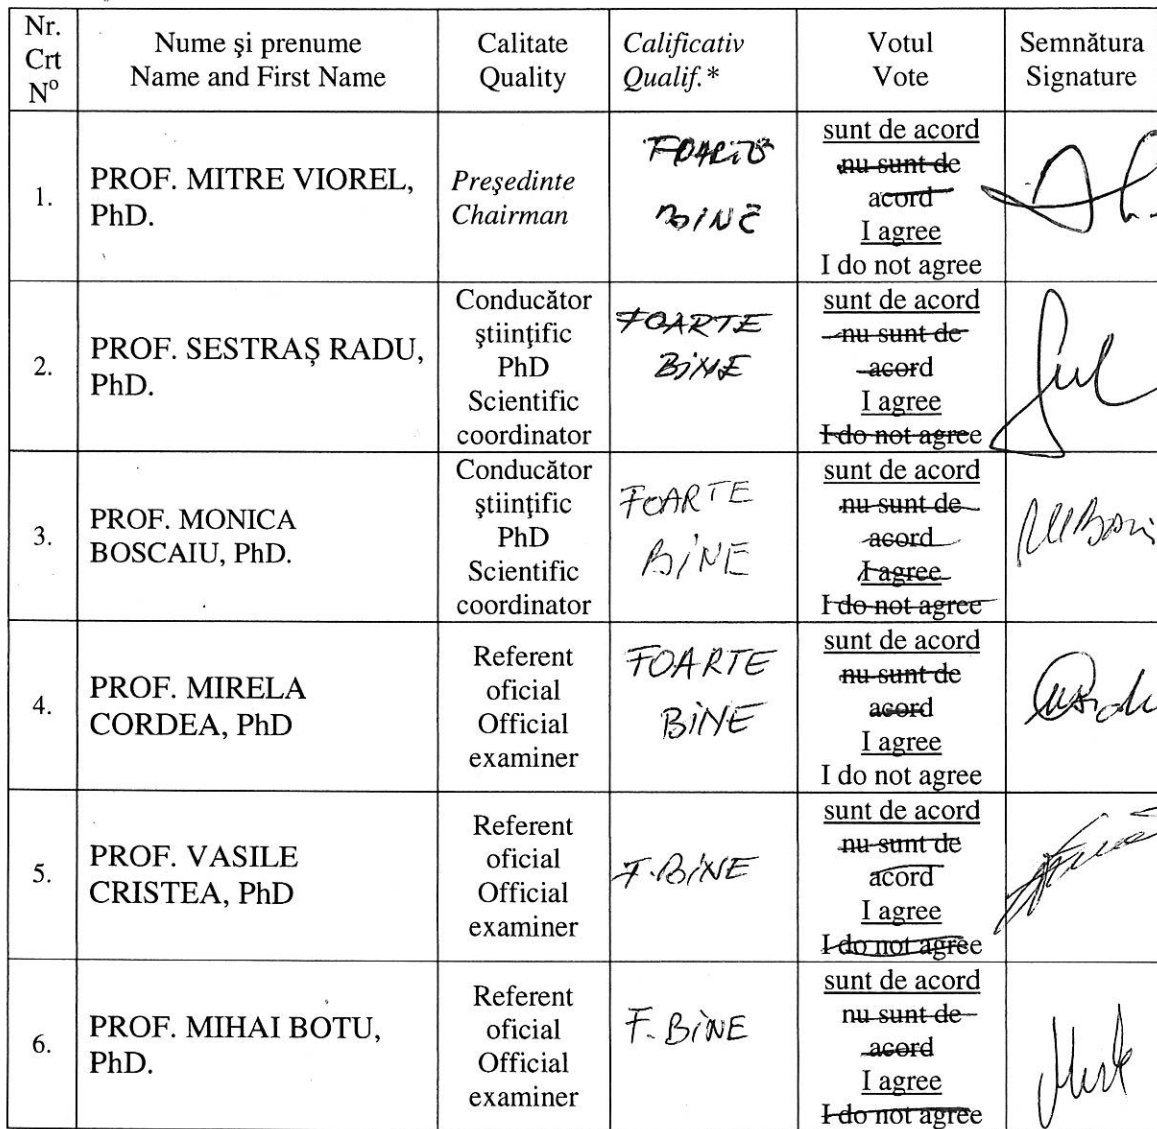 Nr.
Crt
N°
Nume şi prenume
Name and First Name
Calitate
Quality
Calificativ
Qualif.*
Votul
Vote
Semnătura
Signature
1.
PROF. MITRE VIOREL,
PhD.
Preşedinte
Chairman
FOARTE
BINE
sunt de acord
nu sunt de
acord
I agree
I do not agree
2.
PROF. SESTRAŞ RADU,
PhD.
Conducător
ştiinţific
PhD
Scientific
coordinator
FOARTE
BINE
sunt de acord
nu sunt de
acord
I agree
I do not agree
3.
PROF. MONICA
BOSCAIU, PhD.
Conducător
ştiinţific
PhD
Scientific
coordinator
FOARTE
BINE
sunt de acord
nu sunt de
acord
I agree
I do not agree
4.
PROF. MIRELA
CORDEA, PhD
Referent
oficial
Official
examiner
FOARTE
BINE
sunt de acord
nu sunt de
acord
I agree
I do not agree
5.
PROF. VASILE
CRISTEA, PhD
Referent
oficial
Official
examiner
F. BINE
sunt de acord
nu sunt de
acord
I agree
I do not agree
6.
PROF. MIHAI BOTU,
PhD.
Referent
oficial
Official
examiner
F. BINE
sunt de acord
nu sunt de
acord
I agree
I do not agree